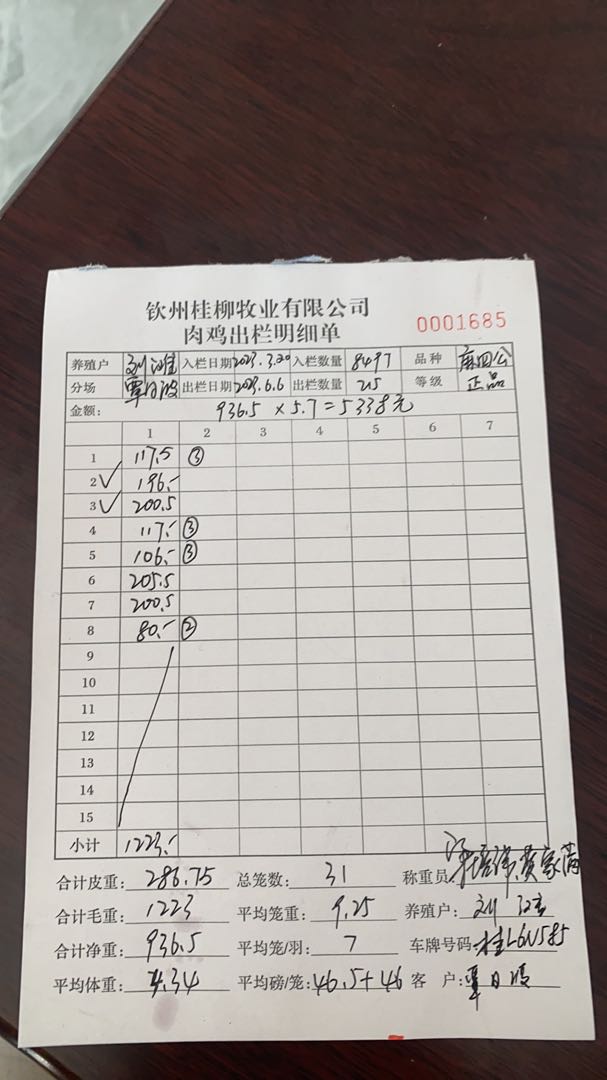 钦州桂柳牧业有限公司
肉鸡出栏明细单
0001685
养殖户 刘 入栏日期 2023.3.20 入栏数量 8497 品种 麻四公
分场 覃 出栏日期 2023.6.6 出栏数量 215 等级 正品
金额: 936.5 × 5.7 = 5338元
1 2 3 4 5 6 7
1 117.5 ③
2 ✓ 196.-
3 ✓ 200.5
4 117.- ③
5 106.- ③
6 205.5
7 200.5
8 80.- ②
9
10
11
12
13
14
15
小计 1223.-
合计皮重: 286.75 总笼数: 31 称重员: 黄家满
合计毛重: 1223 平均笼重: 9.25 养殖户: 刘
合计净重: 936.5 平均笼/羽: 7 车牌号码: 桂L6N585
平均体重: 4.34 平均磅/笼: 46.5+46 客 户: 覃日